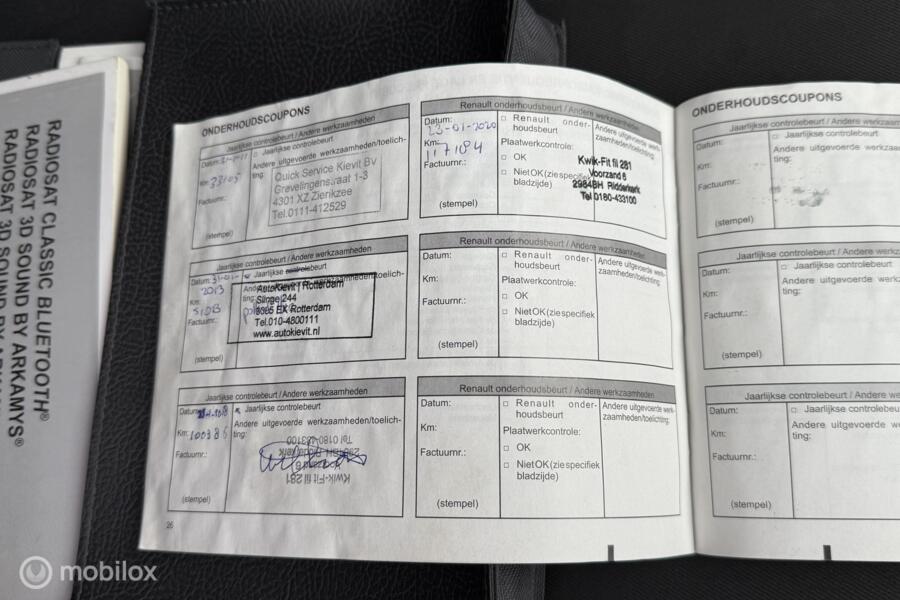 RADIOSAT CLASSIC BLUETOOTH®
RADIOSAT 3D SOUND BY ARKAMYS®
RADIOSAT 3D SOUND BY ARKAMYS®
ONDERHOUDSCOUPONS
Jaarlijkse controlebeurt / Andere werkzaamheden
Datum:
□ Jaarlijkse controlebeurt
Andere uitgevoerde werkzaamheden/toelich-
ting:
Km: 33105
Factuurnr.:
Quick Service Kievit BV
Grevelingenstraat 1-3
4301 XZ Zierikzee
Tel.0111-412529
(stempel)
Jaarlijkse controlebeurt / Andere werkzaamheden
Datum: 31-01-
2013
Jaarlijkse controlebeurt
Km:
Factuurnr.:
AutoKievit | Rotterdam
Slinge 244
3085 EX Rotterdam
Tel.010-4800111
www.autokievit.nl
(stempel)
Jaarlijkse controlebeurt / Andere werkzaamheden
Datum:
Jaarlijkse controlebeurt
Andere uitgevoerde werkzaamheden/toelich-
ting:
Km: 100386
Factuurnr.:
Kwik-Fit fil 281
Tel 0180-433100
(stempel)
26
Renault onderhoudsbeurt / Andere werkzaamheden
Datum:
23-01-2020
Km:
117184
Factuurnr.:
□ Renault onder-
houdsbeurt
Plaatwerkcontrole:
□ OK
□ Niet OK (zie specifiek
bladzijde)
Andere uitgevoerde werk-
zaamheden/toelichting:
Kwik-Fit fil 281
Voorzand 6
2984BH Ridderkerk
Tel 0180-433100
(stempel)
Renault onderhoudsbeurt / Andere werkzaamheden
Datum:
Km:
Factuurnr.:
□ Renault onder-
houdsbeurt
Plaatwerkcontrole:
□ OK
□ Niet OK (zie specifiek
bladzijde)
Andere uitgevoerde werk-
zaamheden/toelichting:
(stempel)
Renault onderhoudsbeurt / Andere werkzaamheden
Datum:
Km:
Factuurnr.:
□ Renault onder-
houdsbeurt
Plaatwerkcontrole:
□ OK
□ Niet OK (zie specifiek
bladzijde)
Andere uitgevoerde werk-
zaamheden/toelichting:
(stempel)
ONDERHOUDSCOUPONS
Jaarlijkse controlebeurt / Andere werkz
Datum:
Km:
Factuurnr.:
□ Jaarlijkse controlebeurt
Andere uitgevoerde werkzaamhe
ting:
(stempel)
Jaarlijkse controlebeurt / Andere werkz
Datum:
Km:
Factuurnr.:
□ Jaarlijkse controlebeurt
Andere uitgevoerde werkzaam
ting:
(stempel)
Jaarlijkse controlebeurt / Andere wer
Datum:
Km:
Factuurnr.:
□ Jaarlijkse controlebeu
Andere uitgevoerde werkzaa
ting:
(stempel)
mobilox